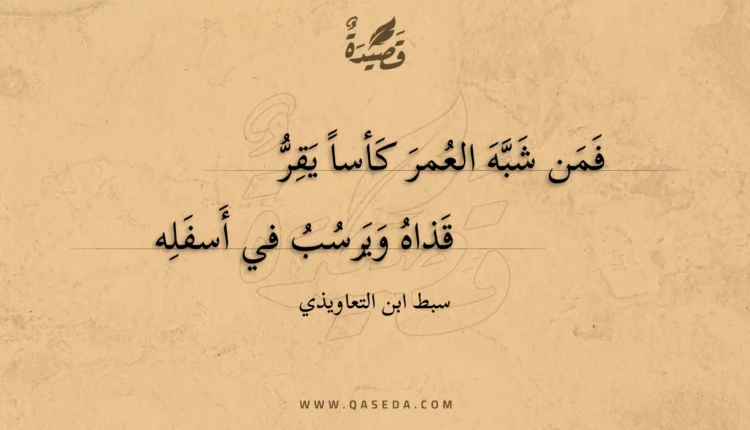 قَصِيدَةٌ
فَمَن شَبَّهَ العُمرَ كَأساً يَقِرُّ
قَذاهُ وَيَرسُبُ في أَسفَلِه
سبط ابن التعاويذي
WWW.QASEDA.COM